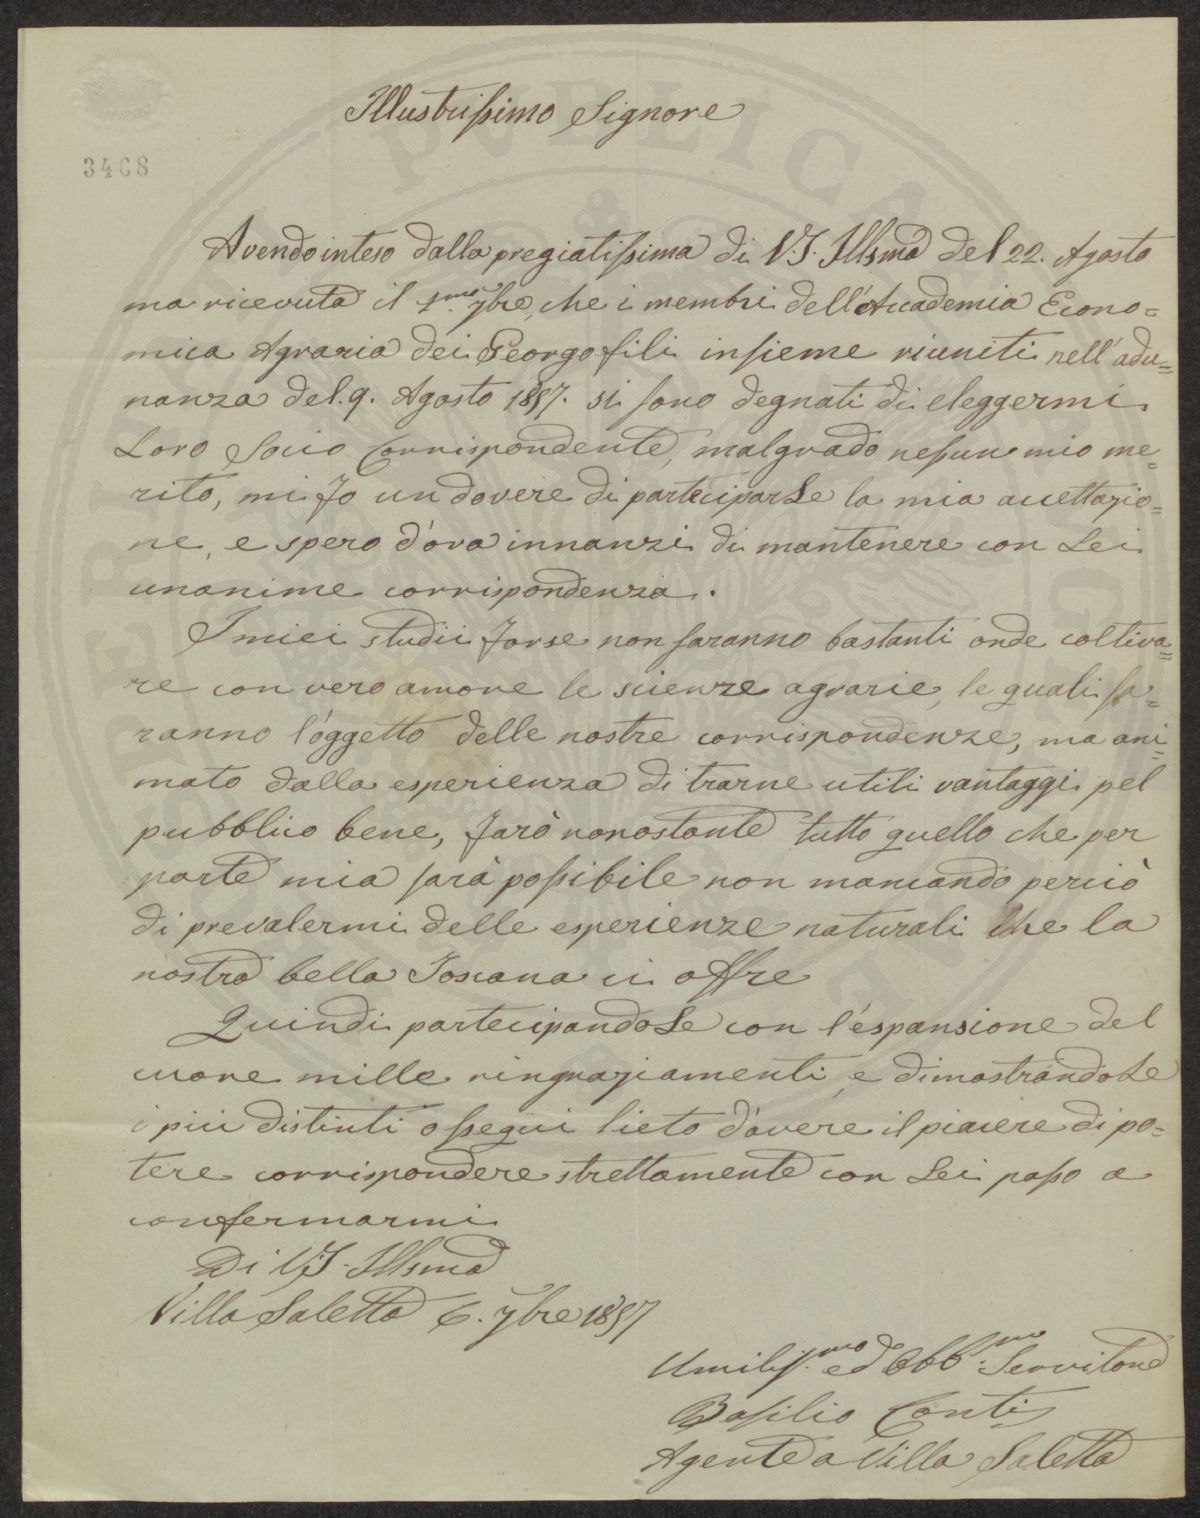 Illustrissimo Signore
3468
Avendo inteso dalla pregiatissima di V.S. Illsma del 22. Agosto
ma ricevuta il 1.mo 7bre, che i membri dell'Accademia Econo=
mica Agraria dei Georgofili insieme riuniti nell'adu=
nanza del 9. Agosto 1857. si sono degnati di eleggermi
Loro Socio Corrispondente, malgrado nessun mio me=
rito, mi fo un dovere di parteciparLe la mia accettazio=
ne, e spero d'ora innanzi di mantenere con Lei
unanime corrispondenza.
I miei studii forse non saranno bastanti onde coltiva=
re con vero amore le scienze agrarie, le quali sa=
ranno l'oggetto delle nostre corrispondenze, ma ani=
mato dalla esperienza di trarne utili vantaggi pel
pubblico bene, farò nonostante tutto quello che per
parte mia sarà possibile non mancando perciò
di prevalermi delle esperienze naturali che la
nostra bella Toscana ci offre
Quindi partecipandoLe con l'espansione del
cuore mille ringraziamenti, e dimostrandoLe
i più distinti ossequi lieto d'avere il piacere di po=
tere corrispondere strettamente con Lei passo a
confermarmi
Di V.S. Illsma
Villa Saletta 6. 7bre 1857
Umiliss.mo ed Obb.mo Servitore
Basilio Conti
Agente a Villa Saletta